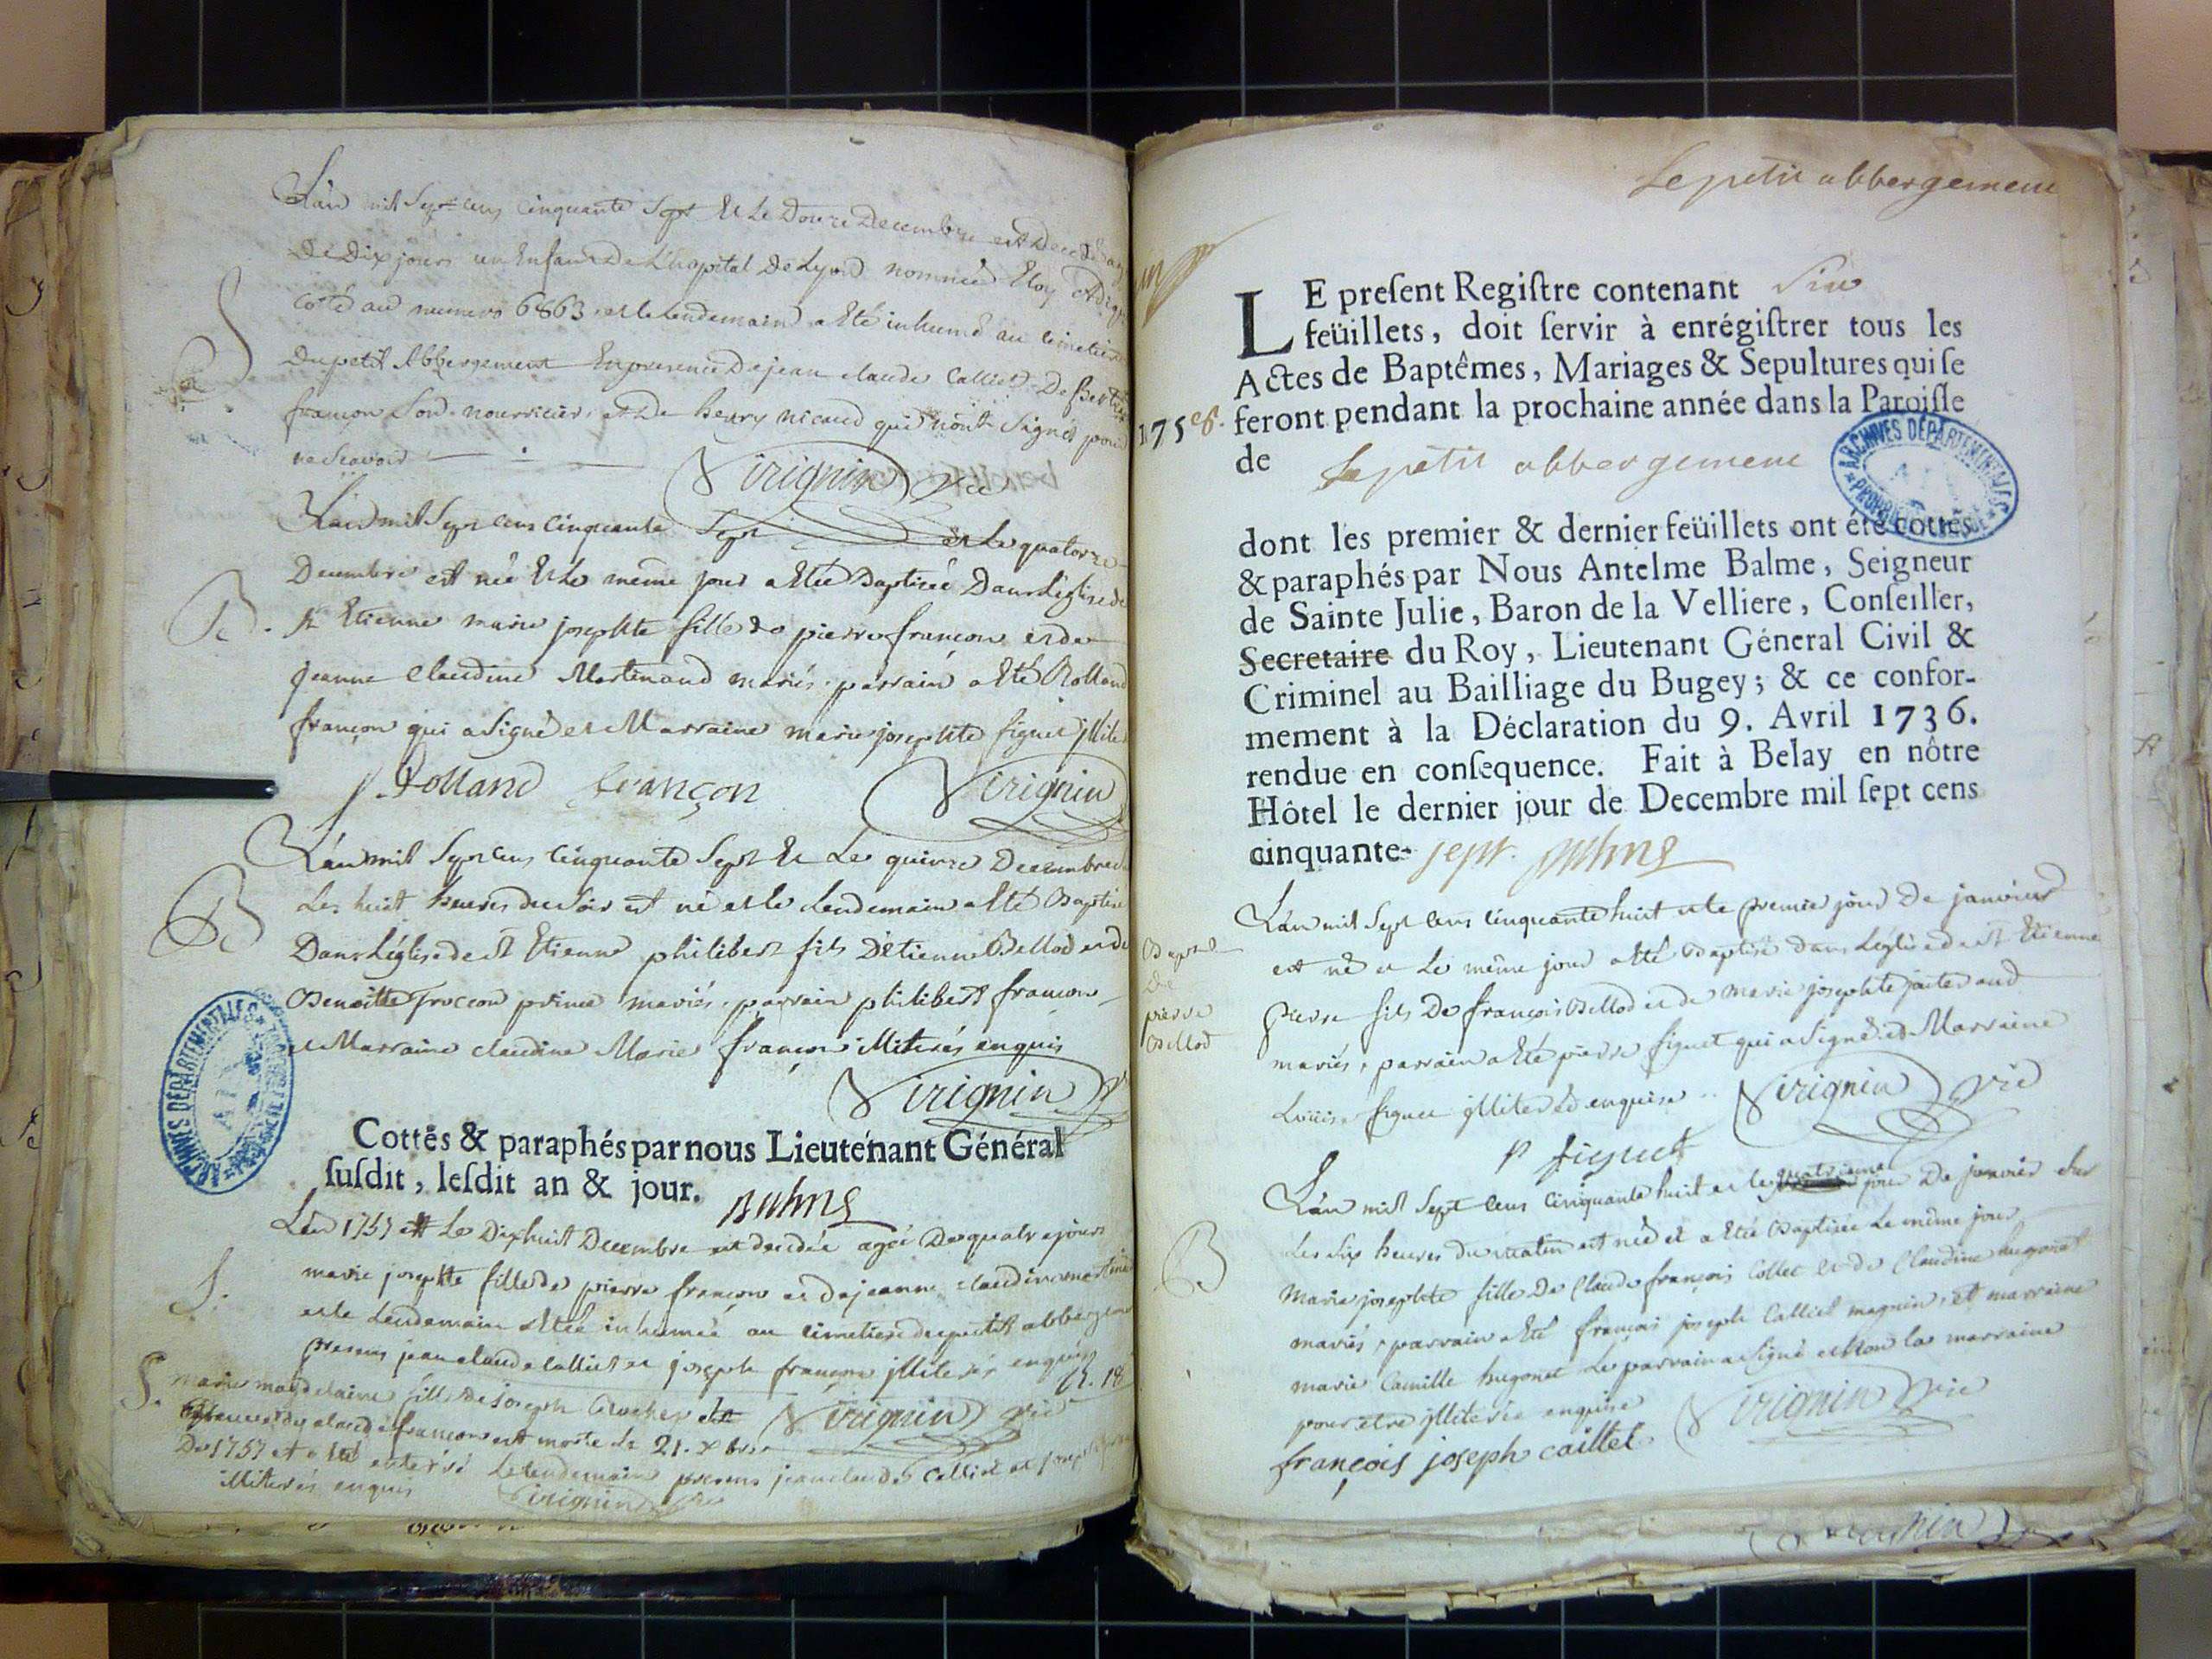 L'an mil Sept cens cinquante Sept Et Le Douze Decembre est decedé
De Dix jours un Enfant De L'hopital De Lyon nommé Eloy
cotté au numero 6863 et le lendemain a Eté inhumé au cimetiere
S
Du petit Abbergement En presence De jean claude Calliet De
françon Son nourricier et De henry nicaud qui n'ont Signés pour
ne Scavoir
Virignin vic
L'an mil Sept cens cinquante Sept et Le quatorze
Decembre est née Et Le même jour a Etée Baptisée Dans L'églisede
B. St Etienne marie josephte fille De pierre françon et de
jeanne Claudine Martinand mariés. parrain a Eté Rolland
françon qui a Signé et Marraine marie josephte figuet
Rolland françon Virignin
L'an mil Sept cens cinquante Sept Et Le quinze Decembre
Les huit heures du Soir est né et le Lendemain a Eté Baptisé
B
Dans L'église de St Etienne philibert fils D'Etienne Bellod et de
Benoitte Troccon prince mariés, parrain philibert françon
et Marraine claudine Marie françon illiterés enquis
Virignin
Cottés & paraphés par nous Lieutenant Général
susdit, lesdit an & jour.
Balme
L'an 1757 et Le Dixhuit Decembre est decédée agée De quatre jours
S.
marie josephte fille de pierre françon et de jeanne claudine
et le Lendemain a Etée inhumée au cimetiere du petit
presens jean claude Calliet et joseph françon illiterés enquis
S. marie magdelaine fille de joseph
Virignin vic
claude françon est morte le 21. Xbre
De 1757 et a Eté enterré Le lendemain presens jean claude Calliet et
illiterés enquis Virignin
Le petit abbergement
LE present Registre contenant Six
feüillets, doit servir à enrégistrer tous les
Actes de Baptêmes, Mariages & Sepultures qui se
1758. feront pendant la prochaine année dans la Paroisse
de Le petit abbergement
ARCHIVES DÉPARTEMENTALES
dont les premier & dernier feüillets ont été cottés
& paraphés par Nous Antelme Balme, Seigneur
de Sainte Julie, Baron de la Velliere, Conseiller,
Secretaire du Roy, Lieutenant Géneral Civil &
Criminel au Bailliage du Bugey; & ce confor-
mement à la Déclaration du 9. Avril 1736.
rendue en consequence. Fait à Belay en nôtre
Hôtel le dernier jour de Decembre mil sept cens
cinquante- sept. Balme
L'an mil Sept cens cinquante huit et le premier jour De janvier
est né et Le même jour a Eté Baptisé dans L'église de St Etienne
Bapt
De
pierre
Bellod
pierre fils De françois Bellod et de Marie josephte
mariés, parrain a Eté pierre figuet qui a Signé et Marraine
Louise figuet illiterée enquise Virignin vic
P figuet
L'an mil Sept cens cinquante huit et le quatrieme jour De janvier sur
B
Les Six heures du matin est née et a Etée Baptisée Le même jour
Marie josephte fille De Claude françois Collet et De Claudine hugonet
mariés, parrain a Eté françois joseph Calliet magnin, et marraine
marie Camille hugonet Le parrain a Signé et non la marraine
pour etre illiterée enquise Virignin vic
françois joseph caillet